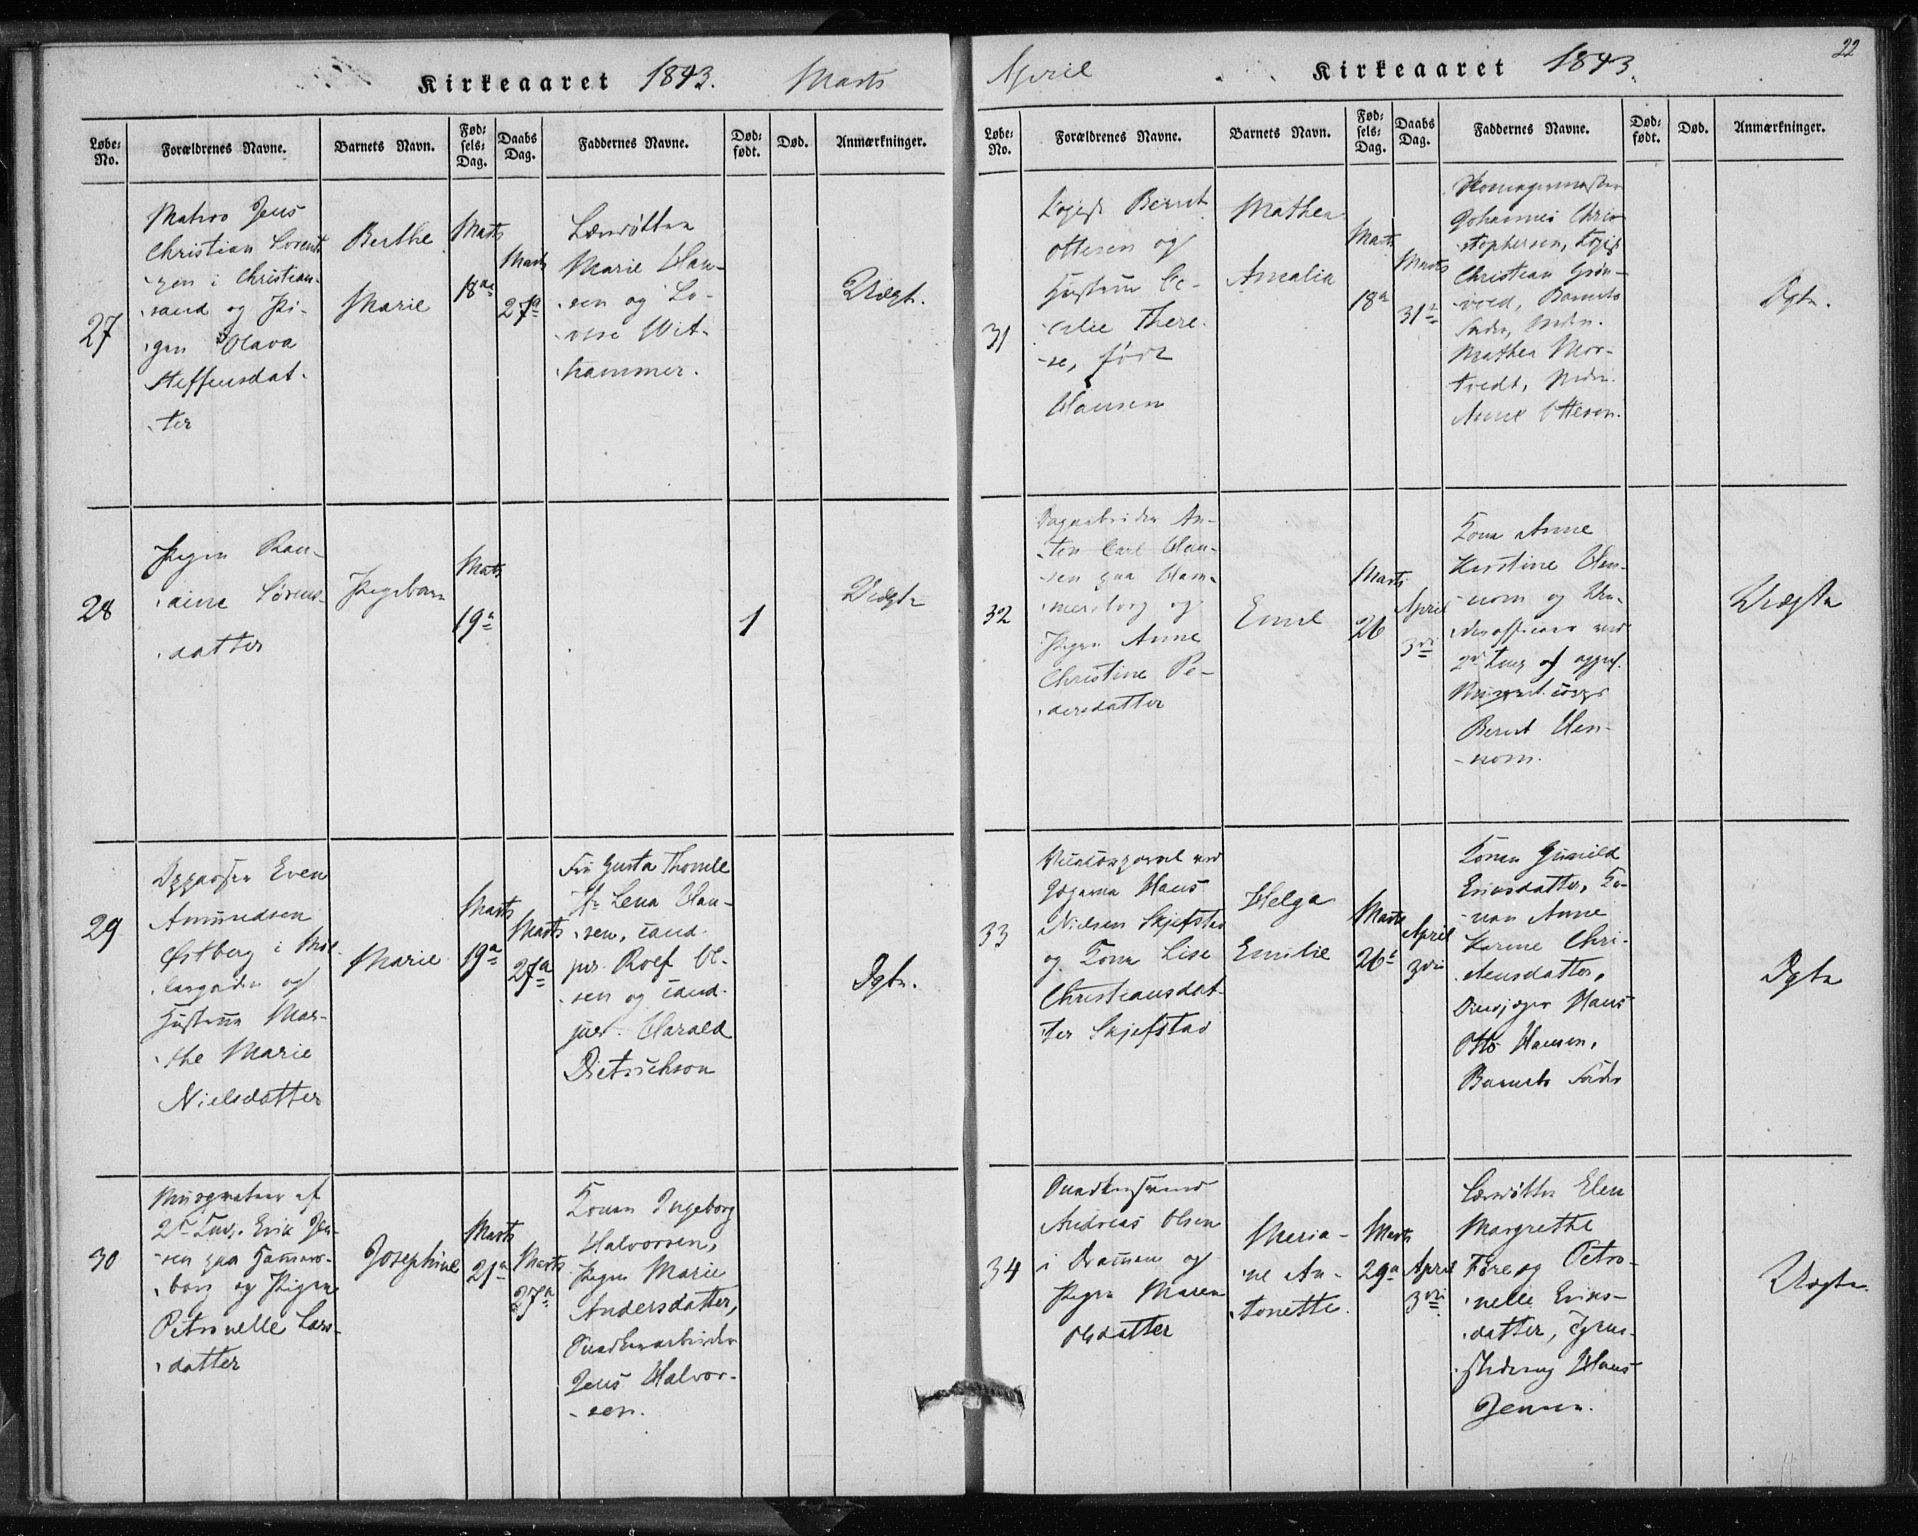 Kirkeaaret 1843. Marts
Løbe-No.
Forældrenes Navne.
Barnets Navn.
Fødsels-Dag.
Daabs Dag.
Faddernes Navne.
Død-født.
Død.
Anmærkninger.
27
Matros Jens
Christian Lorent-
zen i Christian-
sand og Pi-
gen Olava
Steffensdat-
ter
Berthe
Marie
Marts
18de
Marts
27de
Marie Han-
sen og Lo-
vise Wit-
hammer.
Uægte.
28
Pigen
Sørens-
datter
Pigebarn
Marts
19de
1
Uægte
29
Even
Amundsen
Østberg i Møl-
lergaden og
Hustrue Mar-
the Marie
Nielsdatter
Marie
Marts
19de
Marts
27de
Fru Gusta Thomle
Lena Han-
sen, cand.
Rolf Ol-
sen og cand.
jur. Harald
Dietrichson
Ægte.
30
Erik Jen-
sen paa Hammers-
borg og Pigen
Petronelle Lars-
datter
Josephine
Marts
21de
Marts
27de
Konen Ingeborg
Halvorsen,
Pigen Marie
Andersdatter,
Snedkerarbeider
Jens Halvor-
sen.
April Kirkeaaret 1843.
22
Løbe-No.
Forældrenes Navne.
Barnets Navn.
Fødsels-Dag.
Daabs Dag.
Faddernes Navne.
Død-født.
Død.
Anmærkninger.
31
Bernt
Ottesen og
Hustrue Ce-
cilie There-
se, født
Hansen
Mathea
Amalia
Marts
18de
Marts
31te
Skomagermester
Johannes Chri-
stophersen,
Christian Grøn-
vold, Barnets
Fader, Mdm.
Mathea Mor-
tvedt, Mdm.
Anne Ottesen.
Ægte.
32
Dagarbeider An-
ton Carl Han-
sen paa Ham-
mersborg og
Pigen Anne
Christine Pe-
dersdatter
Emil
Marts
26
April
3die
Kone Anne
Kirstine Hen-
nom og Un-
derofficeer ved
Bernt Hen-
nom.
Uægte
33
Hans
Nielsen Skjefstad
og Kone Lise
Christiansdat-
ter Skjefstad
Helga
Emilie
Marts
26de
April
3die
Konen Gunild
Eriksdatter, Ko-
nen Anne
Karine Chri-
stensdatter,
Hans
Otto Hansen,
Barnets Fader
Ægte
34
Snedkersvend
Andreas Olsen
i Drammen og
Pigen Maren
Olsdatter
Maria-
ne An-
tonette.
Marts
29de
April
3die
Elen
Margrethe
Fore og Petro-
nelle Eriks-
datter,
Hans
Jensen.
Uægte.